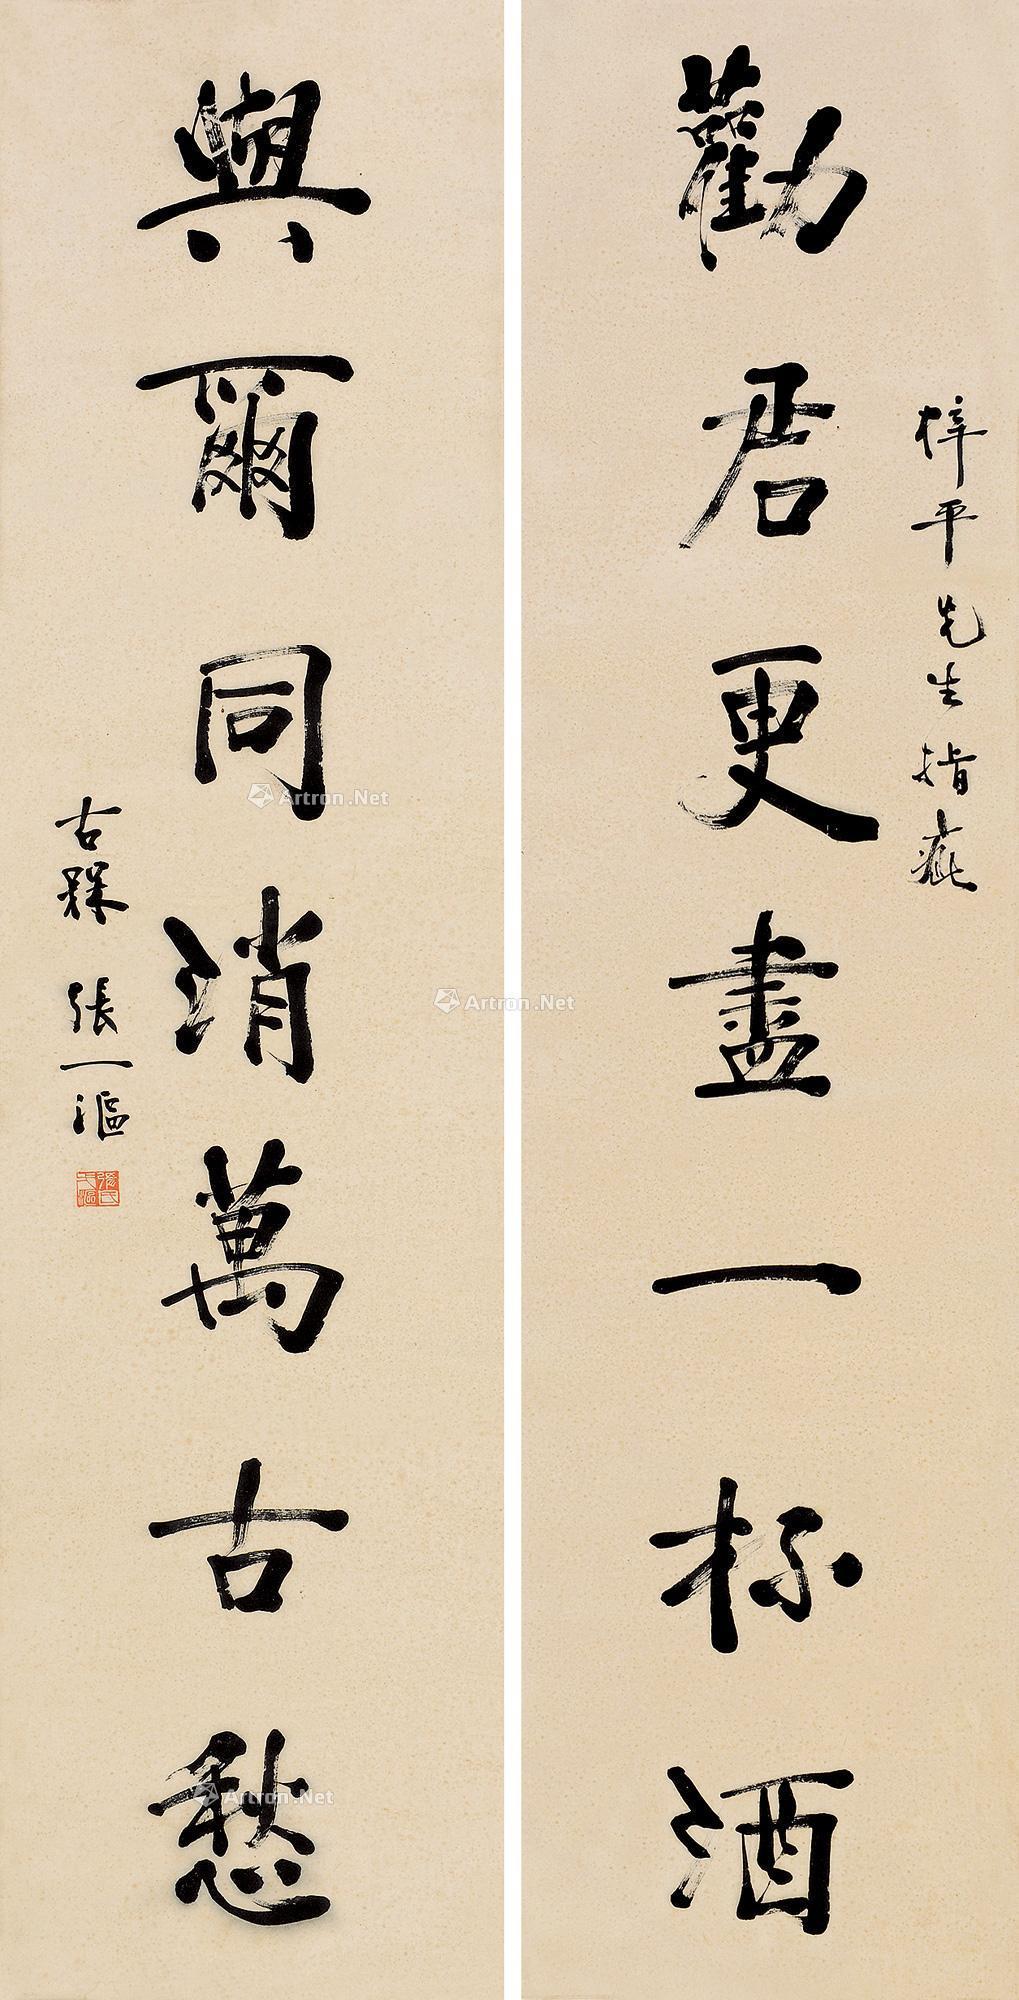 勸君更盡一杯酒
梓平先生指疵
與爾同消萬古愁
古槑 張一漚
Artron.Net
Artron.Net
Artron.Net